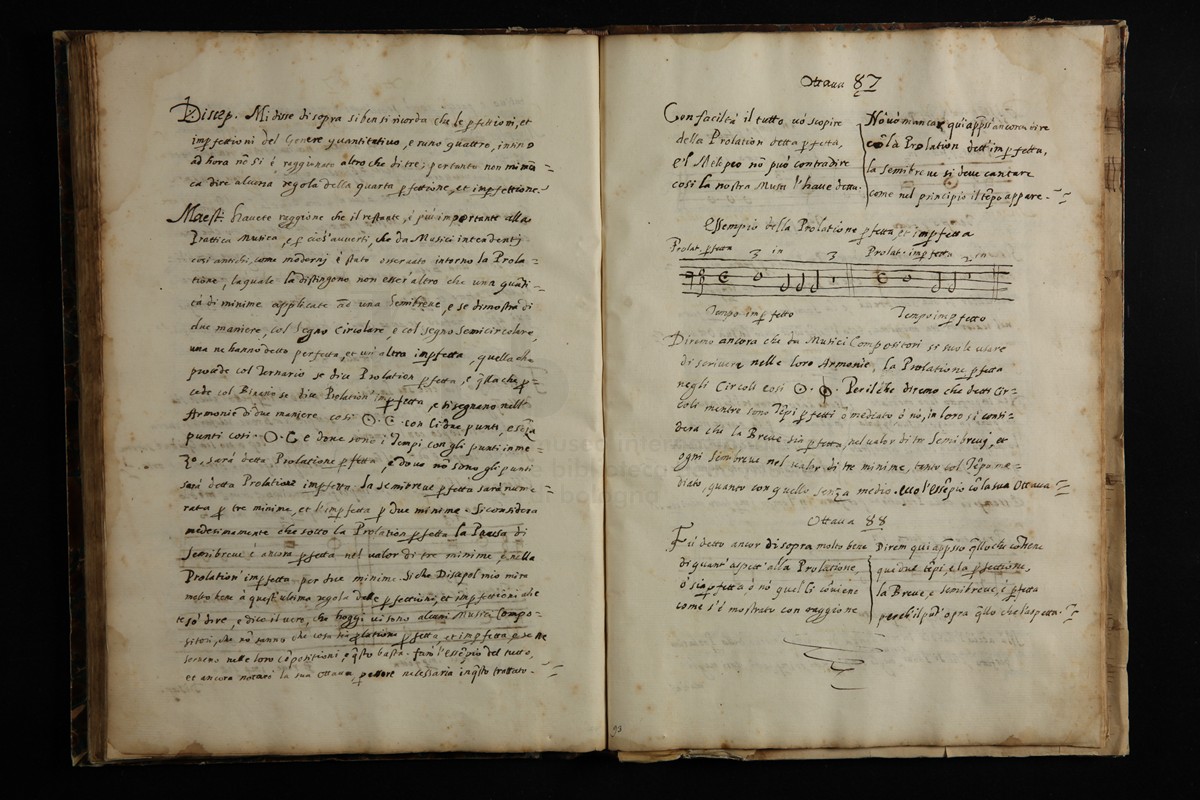 Discep. Mi disse di sopra si ben si ricorda che le pfettioni, et
impfettioni del Genere quantitativo, e runo quattro, intino
ad hora nō si è raggionato altro che di tre; pertanto non
ca dire alcuna regola della quarta pfettione, et impfettione.
Maest: Havete raggione che il restante, è più importante alla
Prattica Musica, e p ciò s'auverti, che da Musici intendenti
così antichi, come moderni è stato osservato intorno la Prola=
tione, laquale la distingono non esser altro che una quāti=
tà di minime applicate ad una Semibreve, e se dimostra di
due maniere, col Segno Circolare, e col segno Semicircolare,
una ne hanno detto perfetta, et un'altra impfetta, quella che
procede col Ternario se dice Prolation pfetta, e q̄lla che p=
cede col Binario se dice Prolation' impfetta, e si segnano nell'
Armonie di due maniere così ʘ. C. con li due punti, e senza
punti così. O. C e dove sono i Tempi con gli punti in me=
zo, sarà detta Prolatione pfetta, e dove nō sono gli punti
sarà detta Prolatione impfetta. La semibreve pfetta sarà nume=
rata p tre minime, et l'impfetta p due minime. Si considera
medesimamente che sotto la Prolation pfetta la Pausa di
Semibreve è ancora pfetta nel valor di tre minime, e nella
Prolation' impfetta per due minime. Si che Discepol mio mira
molto bene à quest'ultima regola delle pfettione, et impfettioni che
te sò dire, e dico il vero, che hoggi vi sono alcuni Musici Compo=
sitori, che nō sanno che cosa sia plationi pfetta, et impfetta, e se ne
serveno nelle loro cōpositioni, e q̄sto basta. farò l'essēpio del tutto,
et ancora notarò la sua ottava p essere necessaria in q̄sto trattato.
Ottava 87
Con facilità il tutto vò scopire
della Prolation detta pfetta,
e'l Melopeo nō può contradire
così la nostra Musa l'have detta.
Nō vò mancar qui app̄sso ancora dire
cō la Prolation dett'impfetta,
la semibreve si deve cantare
come nel principio il tēpo appare.
Essempio della Prolatione pfetta, et impfetta
Prolat. pfetta 3 in 3 Prolat. impfetta 2 in
Tempo impfetto Tempo impfetto
Diremo ancora che da Musici Compositori se suole usare
di scrivere nelle loro Armonie, la Prolatione pfetta
negli Circoli così ʘ. Perilche diremo che detti Cir=
coli mentre sono Tēpi pfetti ò mediato ò nò, in loro si consi=
dera che la Breve sia pfetta, nel valor di tre Semibrevi, et
ogni Semibreve nel valor di tre minime, tanto col Tēpo me=
diato, quanto con quello senza medio. ecco l'essēpio cō la sua Ottava.
Ottava 88
Fù detto ancor di sopra molto bene
di quant' aspett' alla Prolatione,
ò sia pfetta ò nò quel li cōviene
come s'è mostrato con raggione
Direm qui app̄sso q̄llo che cōtiene
qui due tēpi, e la pfettione,
la Breve, e semibreve, è pfetta
perch'il opra q̄llo che l'aspetta.
93
museo internazionale
biblioteca
bologna